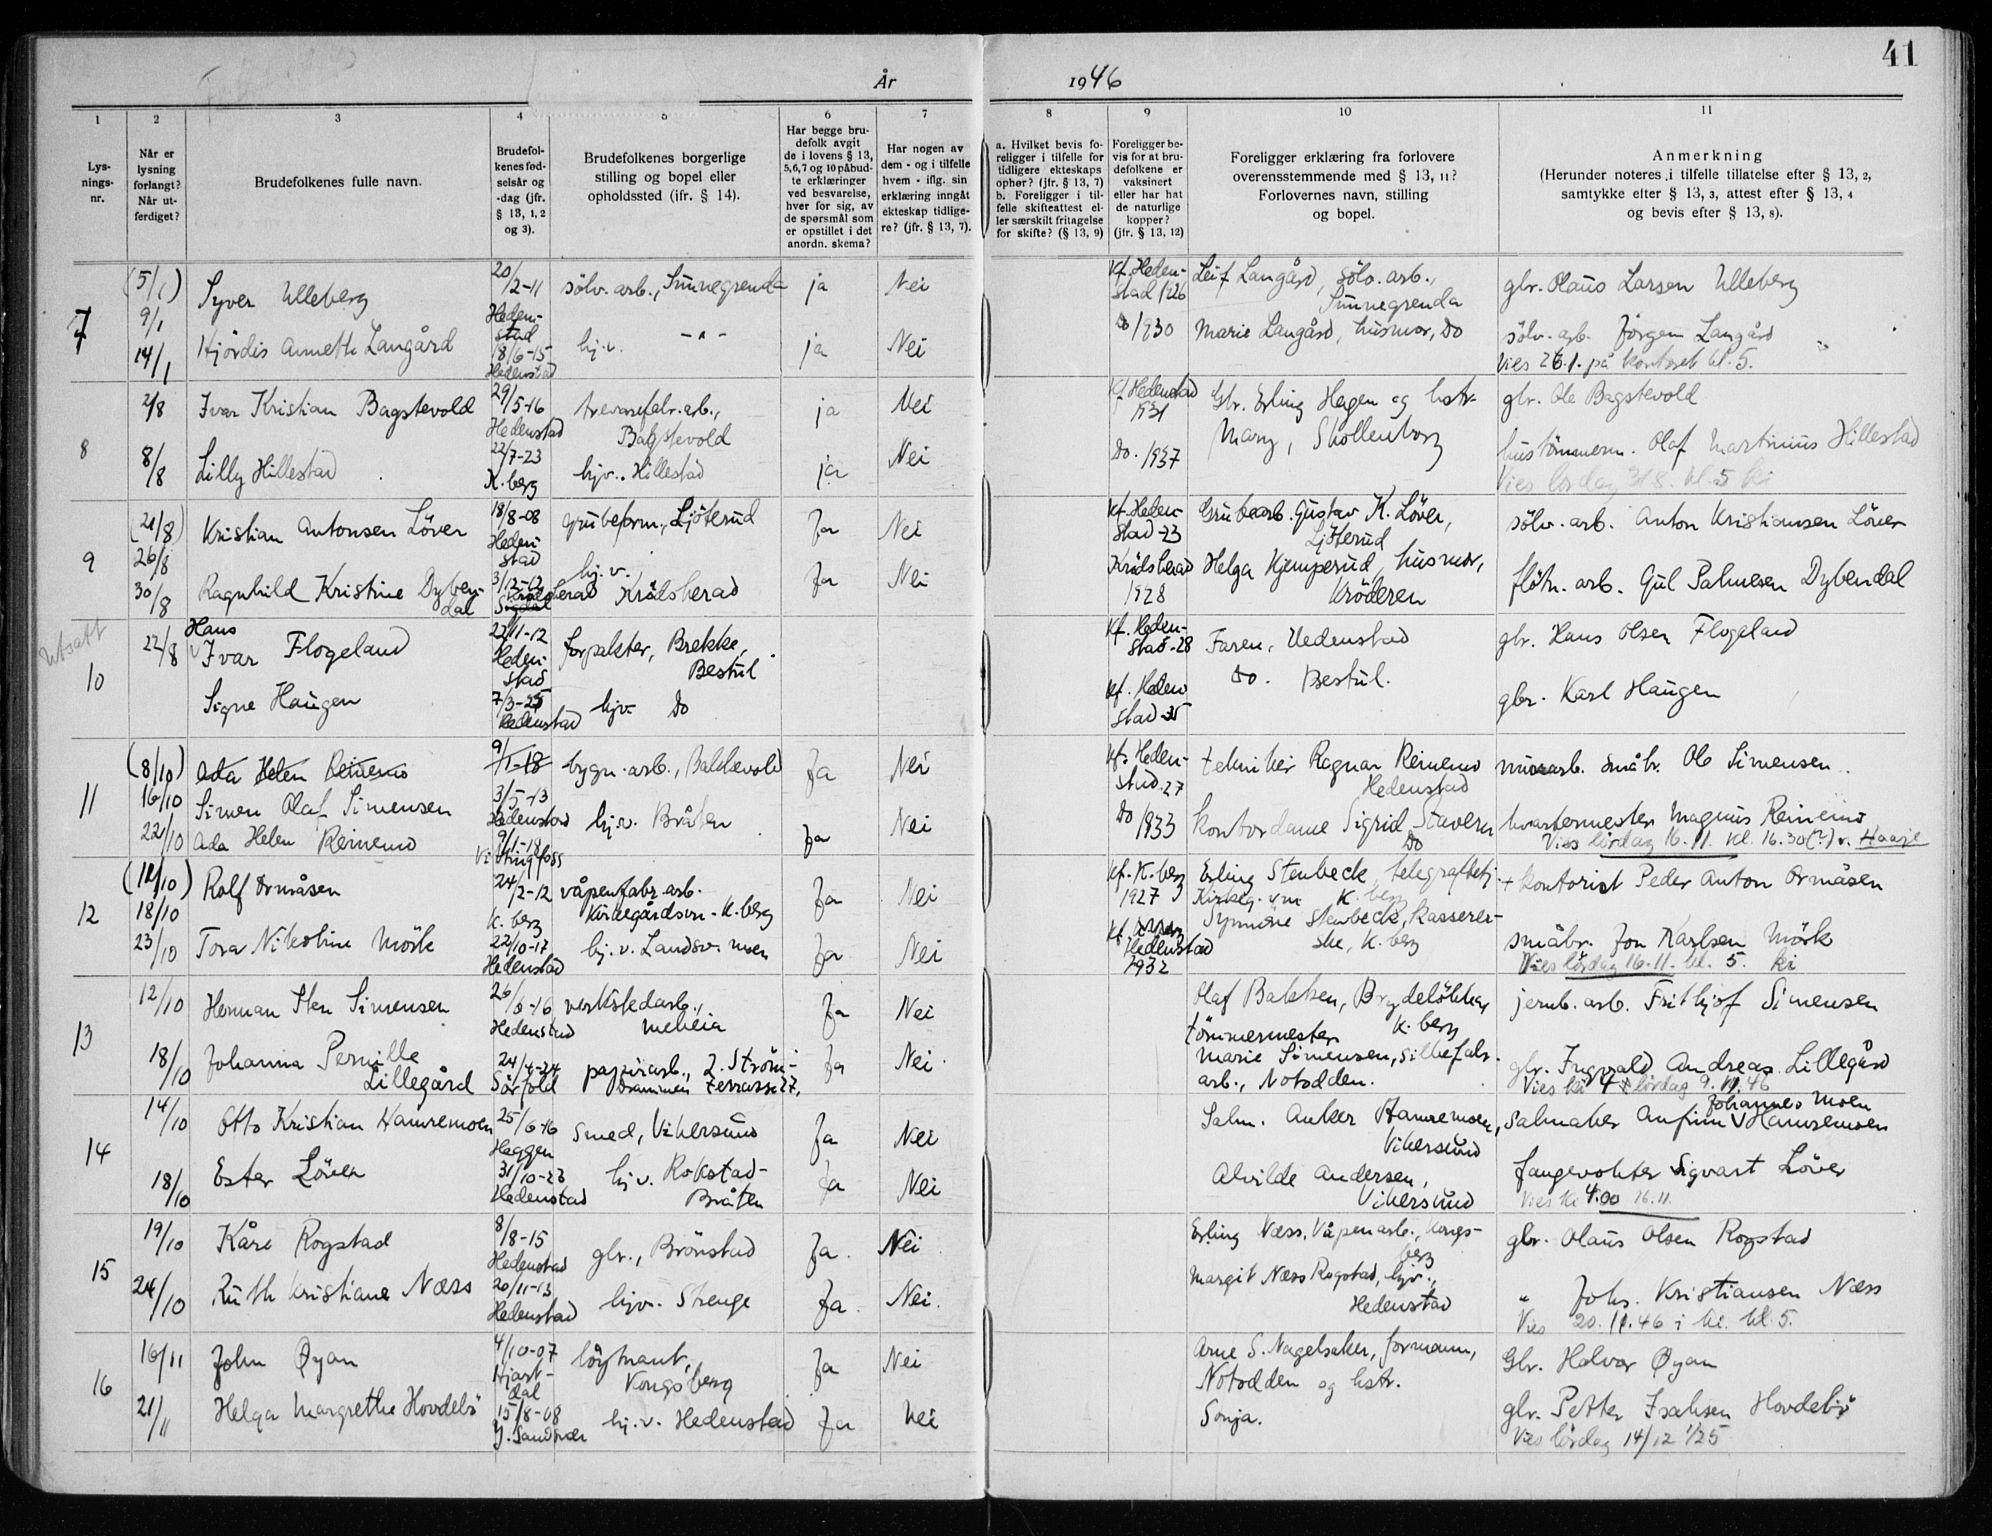 41
År 1946
1
2
3
4
5
6
7
8
9
10
11
Lys-
nings-
nr.
Når er
lysning
forlangt?
Når ut-
ferdiget?
Brudefolkenes fulle navn.
Brudefol-
kenes fød-
selsår og
-dag (jfr.
§ 13, 1, 2
og 3).
Brudefolkenes borgerlige
stilling og bopel eller
opholdssted (ifr. § 14).
Har begge bru-
defolk avgit
de i lovens § 13,
5,6,7 og 10 påbud-
te erklæringer
ved besvarelse,
hver for sig, av
de spørsmål som
er opstillet i det
anordn. skema?
Har nogen av
dem - og i tilfelle
hvem - iflg. sin
erklæring inngått
ekteskap tidlige-
re? (jfr. § 13, 7).
a. Hvilket bevis fo-
religger i tilfelle for
tidligere ekteskaps
ophør? (jfr. § 13, 7)
b. Foreligger i til-
felle skifteattest el-
ler særskilt fritagelse
for skifte? (§ 13, 9)
Foreligger be-
vis for at bru-
defolkene er
vaksinert
eller har hat
de naturlige
kopper?
(jfr. § 13, 12)
Foreligger erklæring fra forlovere
overensstemmende med § 13, 11?
Forlovernes navn, stilling
og bopel.
Anmerkning
(Herunder noteres, i tilfelle tillatelse efter § 13, 2,
samtykke efter § 13, 3, attest efter § 13, 4
og bevis efter § 13, 8).
7
(5/1)
9/1
14/1
Syver Ulleberg
Hjördis Annethe Langård
20/2-11
Heden-
stad
18/6-15
Hedenstad
sölv. arb., Sunnegrenda
hj.v. -"-
ja
ja
Nei
Nei
Kf. Heden-
stad 1926
Do 1930
Leif Langård, sölv. arb.,
Sunnegrenda
Marie Langård, husmor, Do
gbr. Olaus Larsen Ulleberg
sölv. arb. Jörgen Langård
Vies 26.1. på kontoret kl. 5.
8
2/8
8/8
Ivar Kristian Bagstevold
Lilly Hillestad
29/5-16
Hedenstad
22/7-23
K.berg
trevarefabr. arb.,
Bagstevold
hjv. Hillestad
ja
ja
Nei
Nei
Kf. Hedenstad
1931
Do. 1937
Gbr. Erling Hagen og hstr.
Mary, Skollenborg
gbr. Ole Bagstevold
hustömmerm. Olaf Martinius Hillestad
Vies lördag 31 8. kl. 5 ki
9
(21/8)
26/8
30/8
Kristian Antonsen Löver
Ragnhild Kristine Dyben-
dal
18/8-08
Heden-
stad
3/12-12
Krödsherad
Sigdal
grubeform., Ljöterud
hj.v.
Krödsherad
Ja
Ja
Nei
Nei
Kf. Heden-
stad -23
Krödsherad
1928
Grubearb. Gustav K. Löver,
Ljöterud
Helga Kjemperud, husmor,
Kröderen
sölv. arb. Anton Kristiansen Löver
flötn. arb. Gul Palmesen Dybendal
Utsatt
10
22/8
Hans
Ivar Flogeland
Signe Haugen
22/11-12
Heden-
stad
7/3-25
Hedenstad
forpakter, Brekke,
Bestul
hjv. Do
Kf. Heden-
stad -28
Kf. Heden
stad -35
Faren, Hedenstad
Do. Bestul.
gbr. Hans Olsen Flogeland
gbr. Karl Haugen
11
(8/10)
16/10
22/10
Ada Helen Reinemo
Simen Olaf Simensen
Ada Helen Reinemo
9/1-18
3/5-13
Hedenstad
9/1-18
Vittingfoss
bygn. arb., Bakkevold
hj.v. Bråten
Ja
Ja
Nei
Nei
Kf. Heden-
stad -27
Do 1933
tekniker Ragnar Reinemo
Hedenstad
Kontordame Sigrid Stavern
Do
murarb. småbr. Ole Simensen
kvartermester Magnus Reinemo
Vies lördag 16.11. kl. 16.30(?) v. Haaje
12
(12/10)
18/10
23/10
Rolf Ormåsen
Tora Nikoline Mörk
24/2-12
K. berg
22/10-17
Hedenstad
våpenfabr. arb.
Kirkegårdsvn - K. berg
hj. v. Landsv. moen
Ja
Ja
Nei
Nei
Kf. K. berg
1927
Kf.
Hedenstad
1932
Erling Stenbeck, telegrafbetj.
Kirkeg. vn K. berg
Synnöve Stenbeck, kasserer-
ske, K. berg
+ kontorist Peder Anton Ormåsen
småbr. Jon Karlsen Mörk
Vies lördag 16.11. kl. 5. ki
13
12/10
18/10
Herman Sten Simensen
Johanna Pernille
Lillegård
26/6-16
Hedenstad
24/4-24
Sörfold
verkstedarb.,
Meheia
papirarb., 2. Ström-
Drammen terrasse 27.
Ja
Ja
Nei
Nei
Olaf Bakken, Brydelökka,
tömmermester K. berg
Marie Simensen, silkefabr.
arb., Notodden.
jernb. arb. Frithjof Simensen
gbr. Ingvald Andreas Lillegård
Vies ki 4 lördag 9.11.46
14
14/10
18/10
Otto Kristian Hamremoen
Ester Löver
25/6-16
Heggen
31/10-23
Hedenstad
Smed, Vikersund
hj. v. Rokstad-
Bråten
Ja
Ja
Nei
Nei
Salm. Anker Hamremoen,
Vikersund
Alvilde Andersen,
Vikersund
Johannes Moen
Salmaker Anfinn Hamremoen
fangevokter Sigvart Löver
Vies ki 4.00 16.11.
15
19/10
24/10
Kåre Rogstad
Ruth Kristiane Næss
8/8-15
Hedenstad
20/11-13
Hedenstad
gbr., Brönstad
hjv. Strenge
Ja.
Ja.
Nei
Nei.
Erling Næss, Våpenarb., Kongs-
berg
Margit Næss Rogstad, hjv.,
Hedenstad
gbr. Olaus Olsen Rogstad
" Johs. Kristiansen Næss
Vies 20.11.46 i ki. kl. 5.
16
16/11
21/11
John Øyan
Helga Margrethe Hovdebö
4/10-07
Hjart-
dal
15/8-08
Y. Sandsvær
löytnant,
Kongsberg
hj. v. Hedenstad
Ja
Ja
Nei
Nei
Arne S. Nagelsaker, formann,
Notodden og hstr.
Sonja.
Gbr. Halvor Øyan
gbr. Petter Isaksen Hovdebö
Vies lördag 14/12 1/25